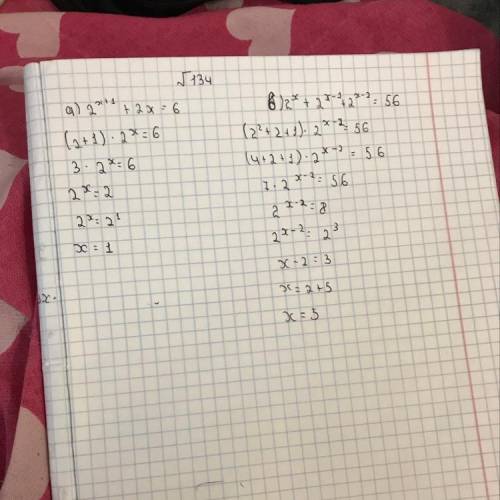 √134
а) 2^{x+1} + 2x = 6
(2+1) · 2^x = 6
3 · 2^x = 6
2^x = 2
2^x = 2^1
x = 1
в) 2^x + 2^{x-1} + 2^{x-2} = 56
(2^2 + 2 + 1) · 2^{x-2} = 56
(4+2+1) · 2^{x-2} = 56
7 · 2^{x-2} = 56
2^{x-2} = 8
2^{x-2} = 2^3
x - 2 = 3
x = 2+3
x = 5